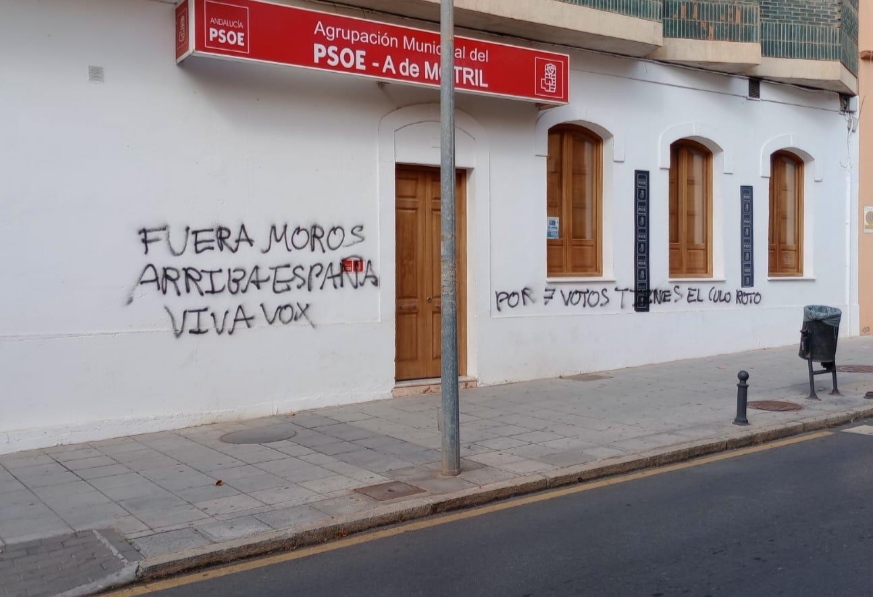 ANDALUCÍA
PSOE
Agrupación Municipal del
PSOE - A de MOTRIL
FUERA MOROS
ARRIBA ESPAÑA
VIVA VOX
POR 7 VOTOS TIENES EL CULO ROTO